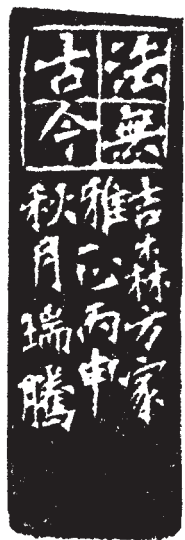 法無
古今
吉木林方家
雅正丙申
秋月瑞騰